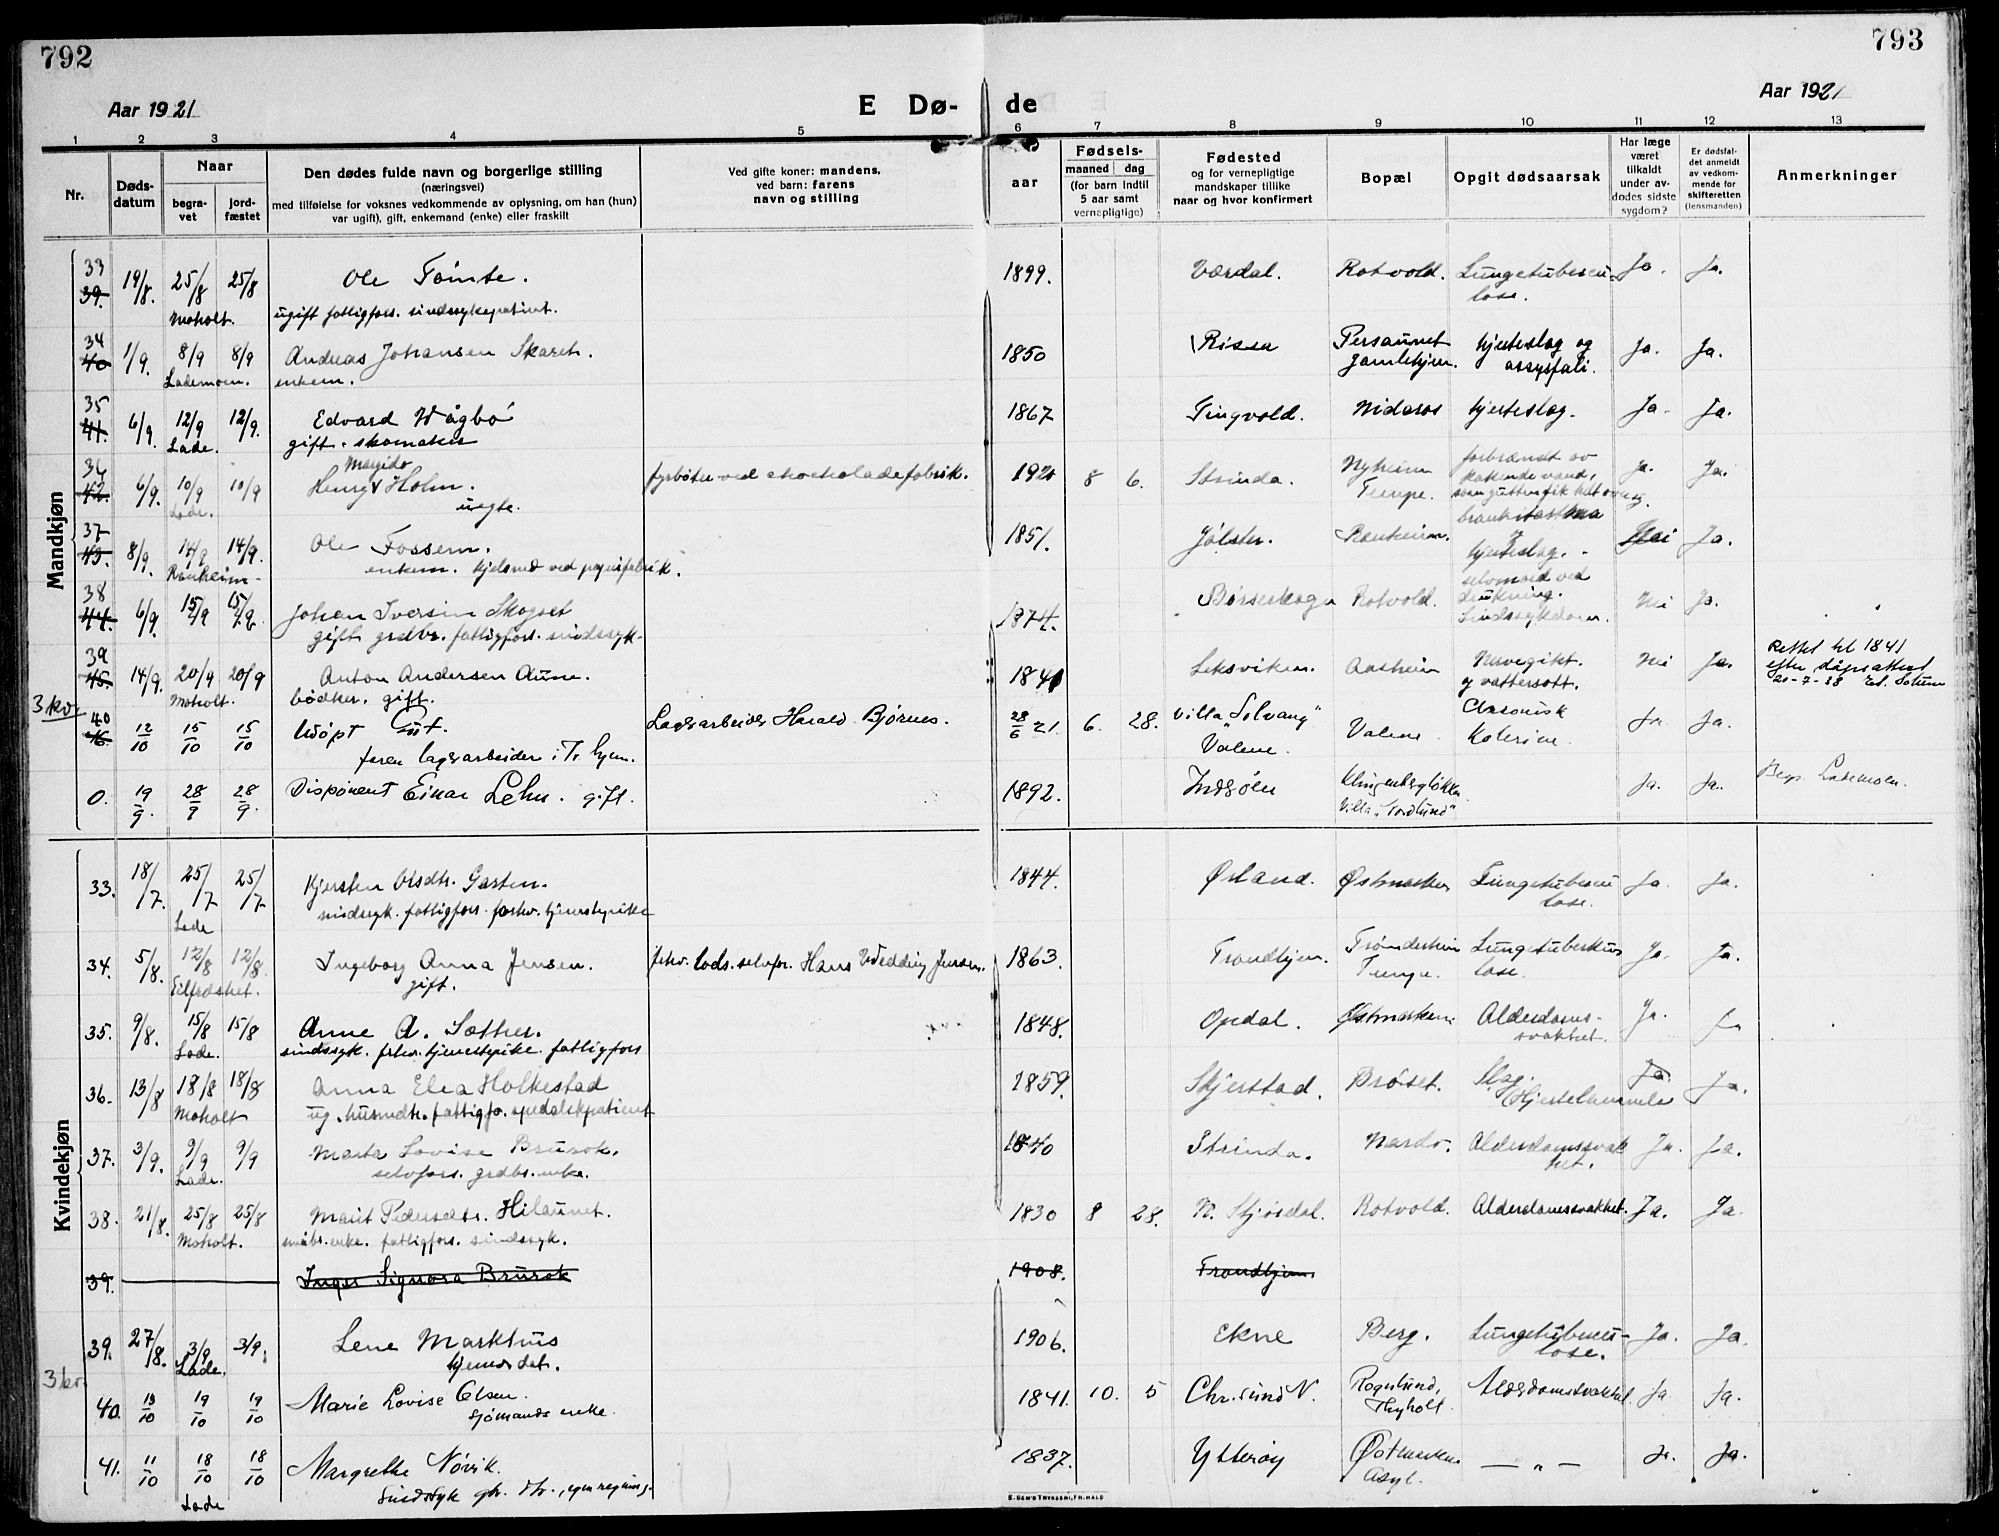 792
793
Aar 1921
E Dø-
de
Aar 1921
1 2 3 4 5 6 7 8 9 10 11 12 13
Nr.
Døds-
datum
Naar
begra-
vet
jord-
fæstet
Den dødes fulde navn og borgerlige stilling
(næringsvei)
med tilføielse for voksnes vedkommende av oplysning, om han (hun)
var ugift), gift, enkemand (enke) eller fraskilt
Ved gifte koner: mandens,
ved barn: farens
navn og stilling
aar
Fødsels-
maaned dag
(for barn indtil
5 aar samt
vernepligtige)
Fødested
og for vernepligtige
mandskaper tillike
naar og hvor konfirmert
Bopæl
Opgit dødsaarsak
Har læge
været
tilkaldt
under av-
dødes sidste
sygdom?
Er dødsfal-
det anmeldt
av vedkom-
mende for
skifteretten
(lensmanden)
Anmerkninger
Mandkjøn
33 39. 19/8. 25/8 25/8 Ole Tømte. 1899. Værdal. Rotvold. Lungetubercu- Ja. Ja.
Moholt. ugift fattigfors. sindssykepatient. lose.
34 40 1/9. 8/9 8/9 Andreas Johansen Skaret. 1850 Rissa Persaunet hjerteslag og Ja. Ja.
Lademoen. enkem. gamlehjem.
35 41. 6/9. 12/9 12/9. Edvard Vågbø 1867 Tingvold. Nidaros hjerteslag. Ja. Ja.
Lade. gift. skomaker
36 42. 6/9. 10/9 10/9 Henry Margido Holm. fyrbøter ved chocholadefabrik. 1920 8 6. Strinda. Nyheim forbrændt av Ja. Ja.
Lade. uegte. Tempe. kokende vand,
som gutten fik helt over sig
37 43. 8/9. 14/9 14/9. Ole Fossem. 1851. Jølster. Ranheim. Ja.
Ranheim enkem. ved papirfabrik. hjerteslag.
38 44. 6/9. 15/9 15/9. Johan Iversen Skogset 1874. Børseskogn Rotvold. selvmord ved drukning. Nei Ja.
gift grdbr. fattigfors. sindssyk. Sindssykdom.
39 45. 14/9. 20/9 20/9 Anton Andersen Aune. 1841 Leksviken. Aasheim Nervegikt. Nei Ja. Rettet til 1841
Moholt. bødker. gift. og vattersott. efter dåpsattest
3 kr 20-7-38
40 46 12/10 15/10 15/10 Udøpt Gut. Lagerarbeider Harald Bjørnes. 28/6 21. 6. 28. Villa "Solvang" Valene. Chronisk Ja. Ja.
faren lagerarbeider i Tr.hjem. Valene. Katerine.
0. 19/9. 28/9 28/9. Disponent Einar Lehn. gift. 1892. Indsølen Klingenbergløkken Ja. Ja. Begr. Lademoen.
Villa "Nordlund"
Kvindekjøn
33. 18/7. 25/7 25/7 Kjersten Olsdtr. Garten. 1844. Ørland. Østmarken Lungetubercu Ja. Ja.
Lade sindssyk. fattigfors. forhv. tjenestepike lose.
34. 5/8. 12/8 12/8. Ingeborg Anna Jensen. fhv. lods. selvfor. Hans Wedding Jensen. 1863. Trondhjem. Trønderheim Lungetuberku Ja. Ja.
gift. Tempe. lose.
35. 9/8. 15/8 15/8 Anne A. Sæther. 1848. Opdal. Østmarken Alderdoms- Ja.
Lade. sindssyk. fhv. tjenestepike. fattigfors svakhet.
36. 13/8 18/8 18/8 Anna Elea Holkestad 1859. Skjerstad. Brøset. Slag. Ja. Ja.
Moholt ug. husmdtr. fattigfo. spedalskpatient
37. 3/9. 9/9 9/9 Marta Lovise Brurok. 1840 Strinda. Nardo. Alderdomssvak Ja. Ja.
Lade. selvfors. grdbr. enke. het.
38. 21/8. 25/8 25/8 Marit Pedersdtr. Hilaunet. 1830 8 28. N. Stjørdal. Rotvold. Alderdomssvakhet. Ja. Ja
Moholt. enke. fattigfors. sindssyk.
39. Inger Signora Brurok 1908. Trondhjem.
39. 27/8. 3/9 3/9. Lene Markhus 1906. Ekne Berg. Lungetubercu- Ja. Ja.
Lade. lose.
3 kr.
40. 13/10 19/10 19/10 Marie Lovise Olsen. 1841. 10. 5 Chr.sund N. Rognlund, Alderdomssvakhet. Ja. Ja.
sjømands enke. Thyholt.
41. 11/10 18/10 18/10 Margrethe Nøvik. 1837. Ytterøy Østmarken — " — Ja. Ja.
Lade Sindssyk Asyl.
E. SEM'S TRYKKERI, FR.HALD